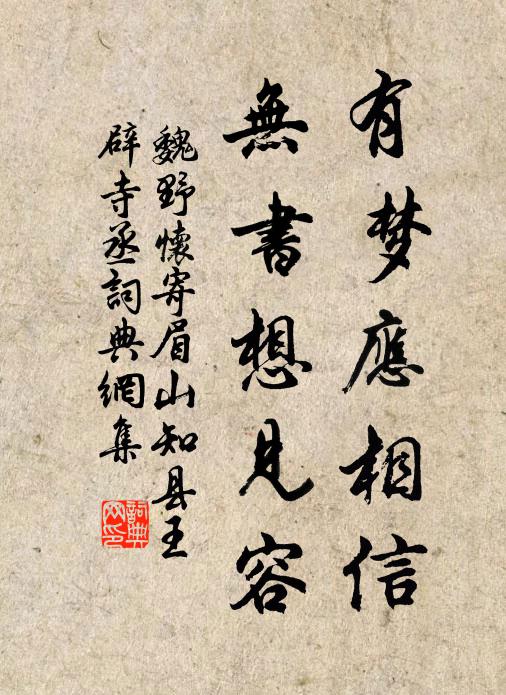 有梦應相信
無書想見容
魏野懷寄眉山知县王
辟寺丞詞典網集
詞典
网印